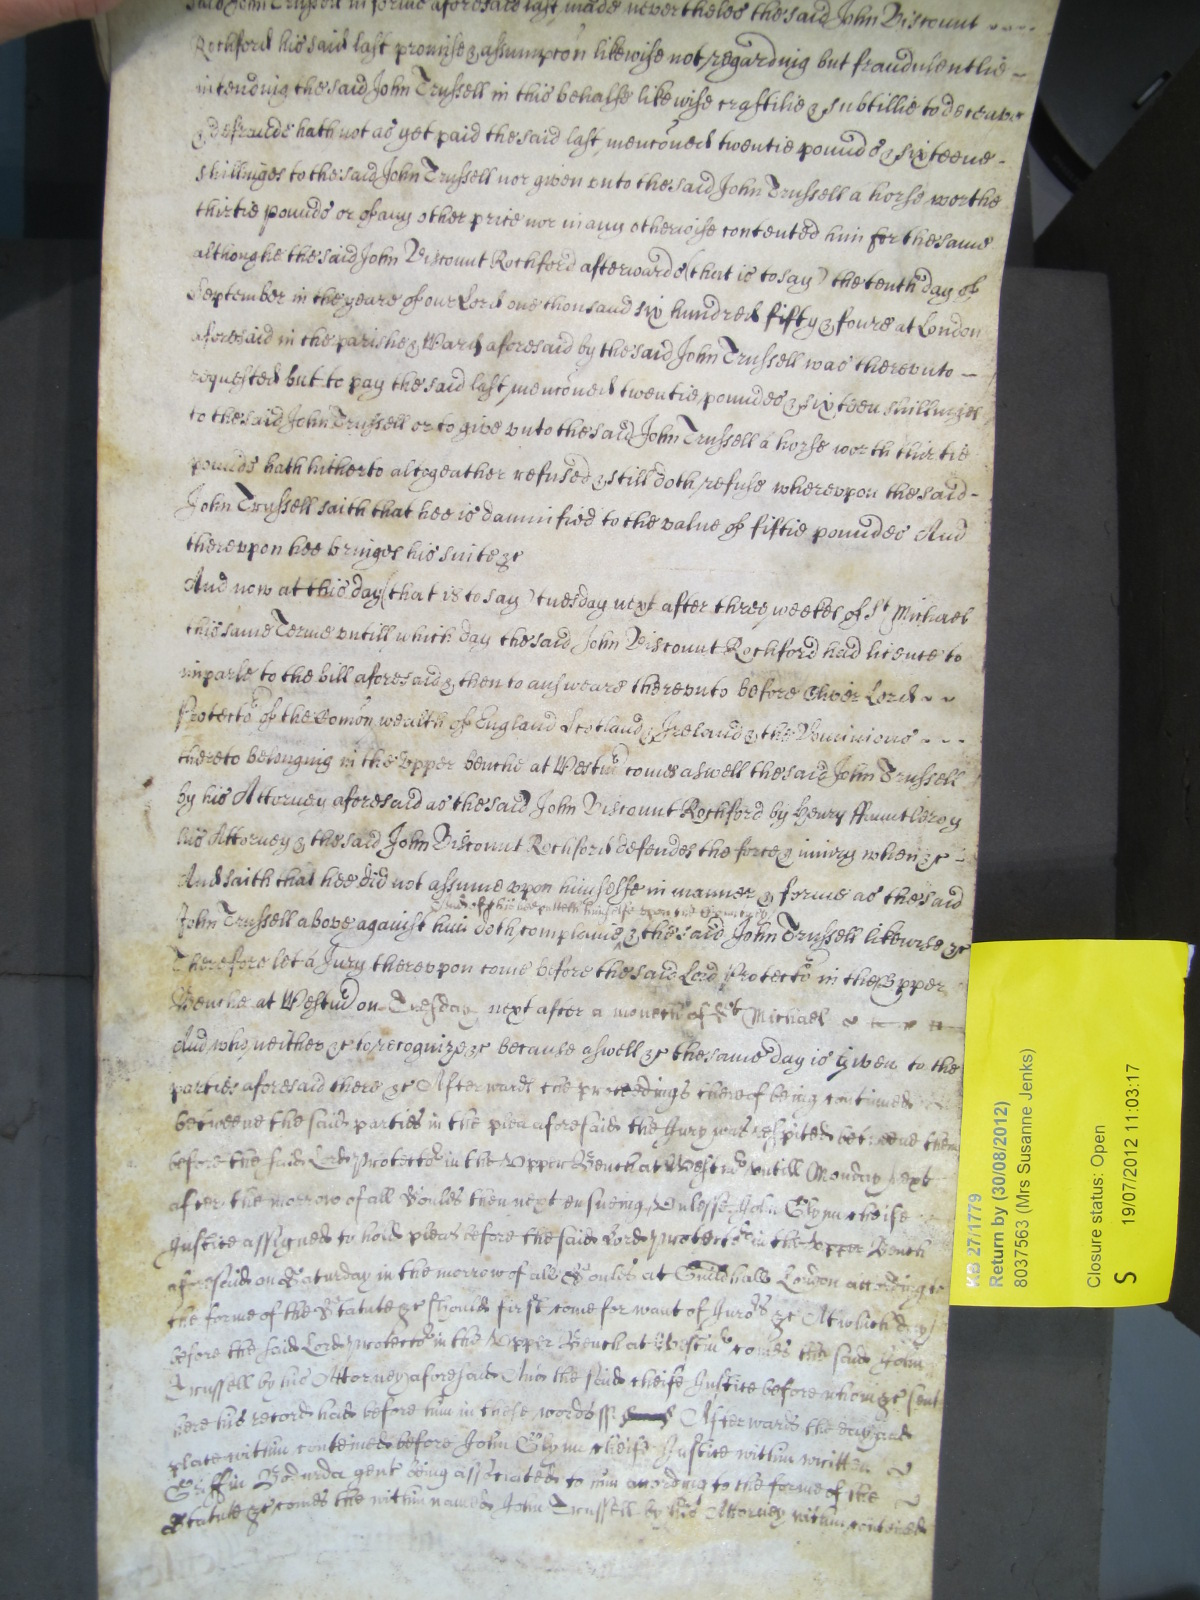 said John Trussell in forme aforesaid last made neverthelesse the said John Viscount
Rochford his said last promise & assumpcon likewise not regarding but fraudulentlie
intending the said John Trussell in this behalfe likewise craftilie & subtillie to deceave
& defraude hath not as yet paid the said last menconed twentie pounds & sixteene
shillinges to the said John Trussell nor given unto the said John Trussell a horse worthe
thirtie pounds or of any other price nor in any otherwise contented him for the same
althoughe the said John Viscount Rochford afterwards (that is to say) the tenth day of
September in the yeare of our Lord one thousand six hundred fifty & foure at London
aforesaid in the parishe & Ward aforesaid by the said John Trussell was thereunto
requested but to pay the said last menconed twentie poundes & sixteen shillinges
to the said John Trussell or to give unto the said John Trussell a horse worth thirtie
pounds hath hitherto altogeather refused & still doth refuse whereupon the said
John Trussell saith that hee is damnified to the value of fiftie poundes And
thereupon hee bringes his suite &c
And now at this day (that is to say) tuesday next after three weekes of St Michael
this same Terme untill which day the said John Viscount Rochford had licence to
imparle to the bill aforesaid & then to answeare thereunto before Oliver Lord
Protector of the Comon wealth of England Scotland & Ireland & the Dominions
thereto belonging in the Upper benche at Westm comes aswell the said John Trussell
by his Attorney aforesaid as the said John Viscount Rochford by Henry ffauntleroy
his Attorney & the said John Viscount Rochford defendes the force & iniury when &c
And saith that hee did not assume upon himselfe in manner & forme as the said
And of this hee putteth himselfe upon the Countrey
John Trussell above against him doth complaine & the said John Trussell likewise &c
Therefore let a Jury thereupon come before the said Lord Protector in the Upper
Benche at Westm on Tuesday next after a moneth of St Michael
And who neither &c to recognize &c because aswell &c the same day is given to the
parties aforesaid there &c Afterwards the proceedings thereof being continued
betweene the said parties in the plea aforesaid the Jury was respited betweene them
before the said Lord Protector in the Upper Bench at Westm untill Monday next
after the morrow of all Soules then next ensueing Unlesse John Glynn cheife
Justice assigned to hold pleas before the said Lord Protector in the Upper Bench
aforesaid on Saturday in the morrow of all Soules at Guildhall London according to
the forme of the Statute &c should first come for want of Jurors &c At which day
before the said Lord Protector in the Upper Bench at Westm comes the said John
Trussell by his Attorney aforesaid And the said cheife Justice before whom &c sent
here his record had before him in these words ss Afterwards the day and
place within conteined before John Glynn cheife Justice within written
Griffin Bodurda gent being associated to him according to the forme of the
Statute &c comes the within named John Trussell by his Attorney within conteined
KB 27/1779
Return by (30/08/2012)
8037563 (Mrs Susanne Jenks)
Closure status: Open
S 19/07/2012 11:03:17